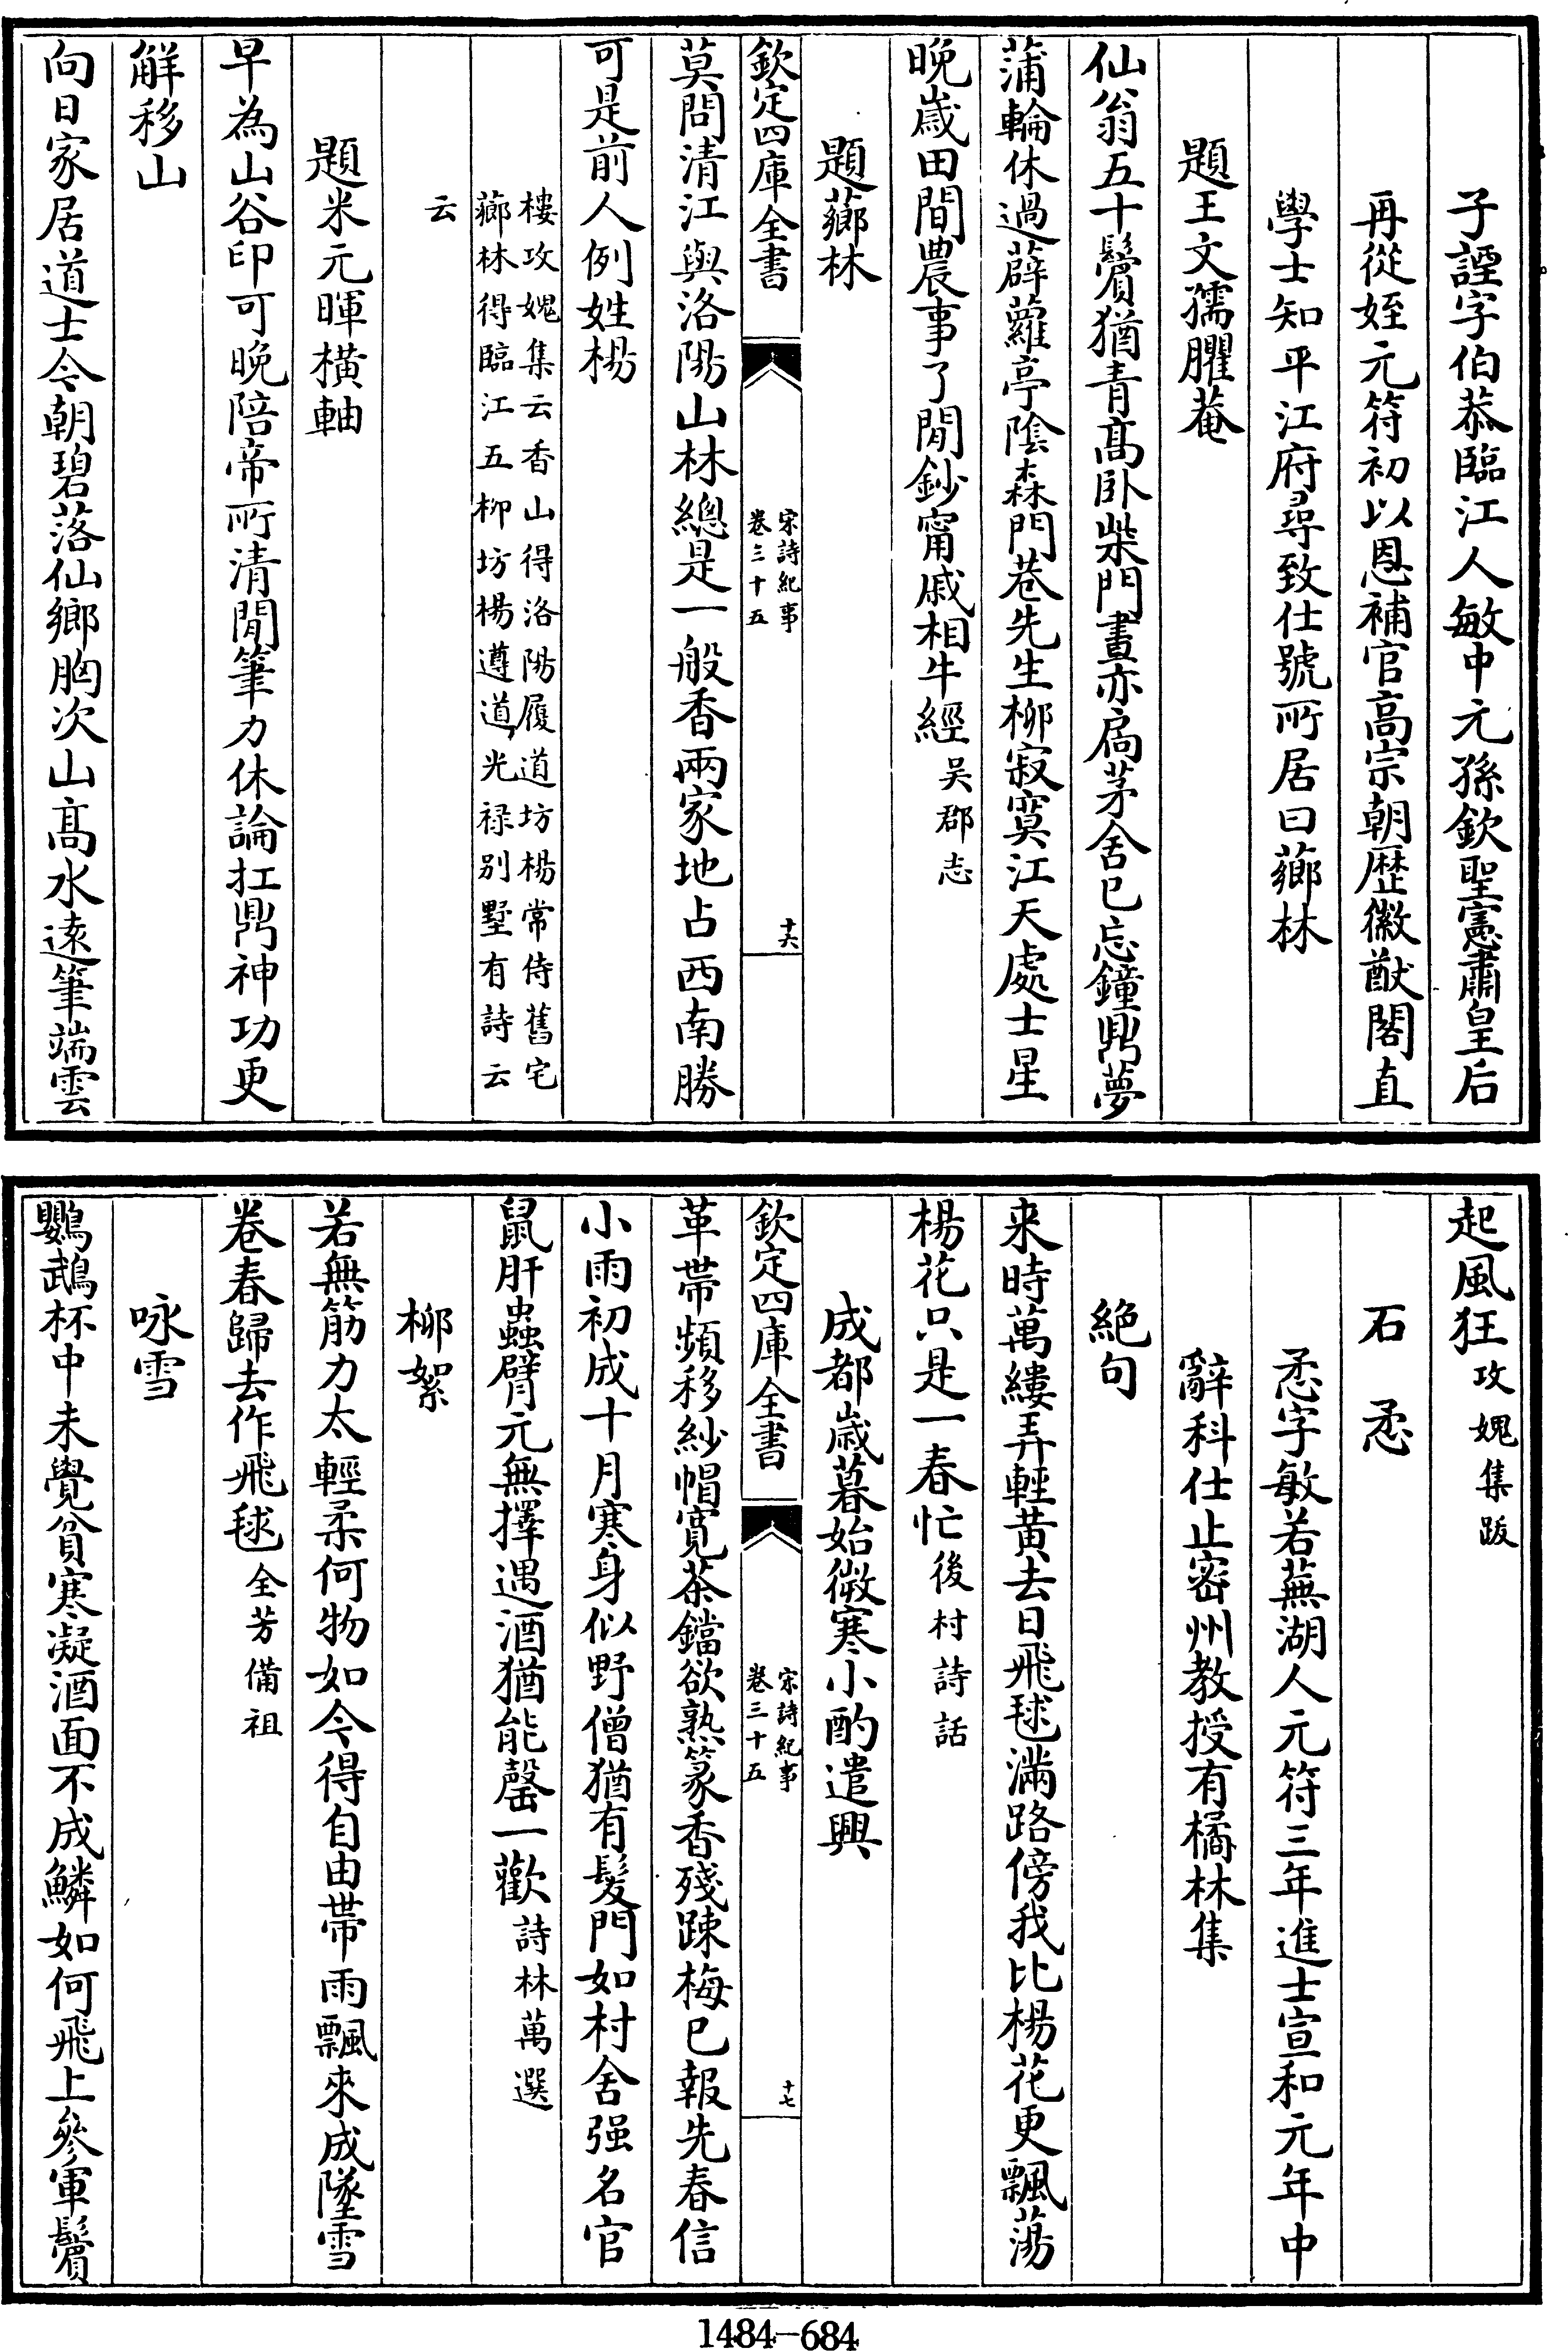 子諲字伯恭臨江人敏中元孫欽聖憲肅皇后
再從姪元符初以恩補官高宗朝歴徽猷閣直
學士知平江府尋致仕號所居曰薌林
題王文孺臞菴
仙翁五十鬢猶青高卧柴門晝亦扃茅舍已忘鐘鼎夢
蒲輪休過薜蘿亭隂森門巷先生栁寂寞江天處士星
晚歲田間農事了閒鈔甯戚相牛經吴郡志
題薌林
欽定四庫全書
宋詩紀事
卷三十五
十六
莫問清江與洛陽山林總是一般香兩家地占西南勝
可是前人例姓楊
樓攻媿集云香山得洛陽履道坊楊常侍舊宅
薌林得臨江五栁坊楊遵道光禄别墅有詩云
云
題米元暉横軸
早為山谷印可晚陪帝所清閒筆力休論扛鼎神功更
解移山
向日家居道士今朝碧落仙鄉胸次山髙水逺筆端雲
起風狂攻媿集跋
石 悉
悉字敏若蕪湖人元符三年進士宣和元年中
辭科仕止密州教授有橘林集
絶句
来時萬縷弄輕黄去日飛毬滿路傍我比楊花更飄蕩
楊花只是一春忙後村詩話
成都歲暮始微寒小酌遣興
欽定四庫全書
宋詩紀事
卷三十五
十七
革帶頻移紗帽寛茶鐺欲熟篆香殘踈梅已報先春信
小雨初成十月寒身似野僧猶有髪門如村舍强名官
鼠肝蟲臂元無擇遇酒猶能罄一歡詩林萬選
栁絮
若無筋力太輕柔何物如今得自由帶雨飄來成墜雪
卷春歸去作飛毬全芳備祖
咏雪
鸚鵡杯中未覺貧寒凝酒面不成鱗如何飛上參軍鬢
1484-684